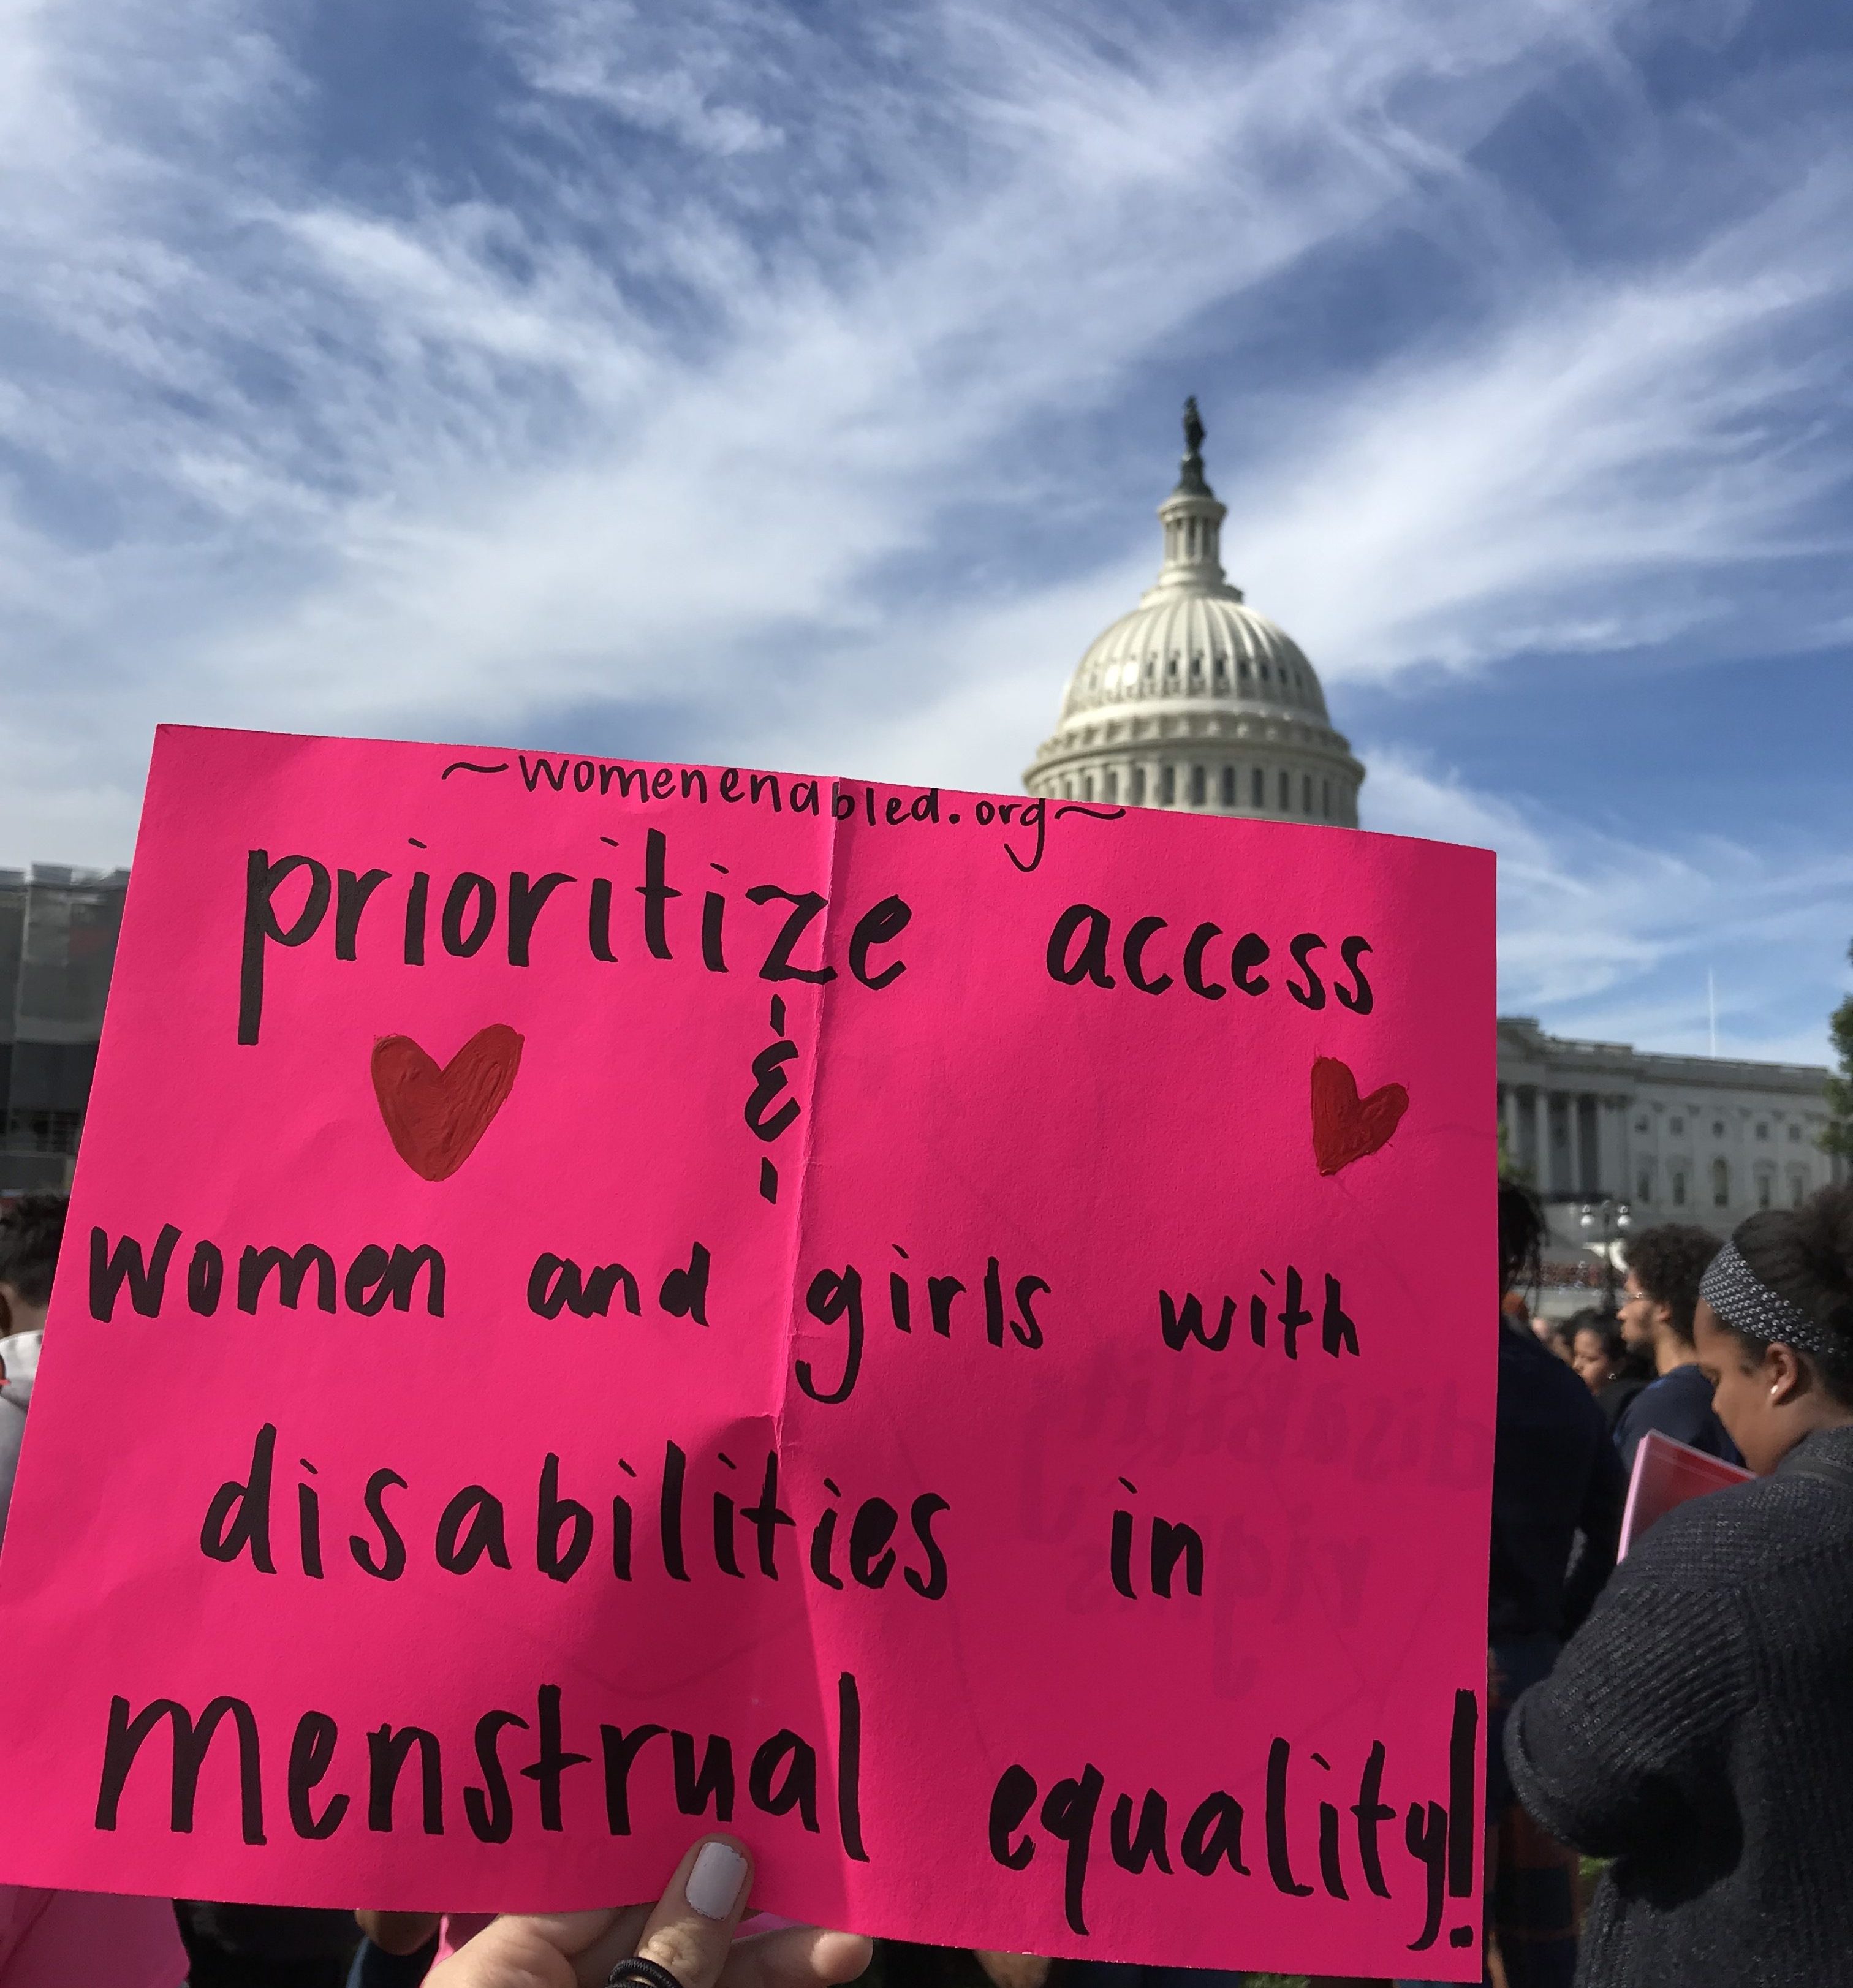 ~womenenabled.org~
prioritize access
&
women and girls with
disabilities in
menstrual equality!